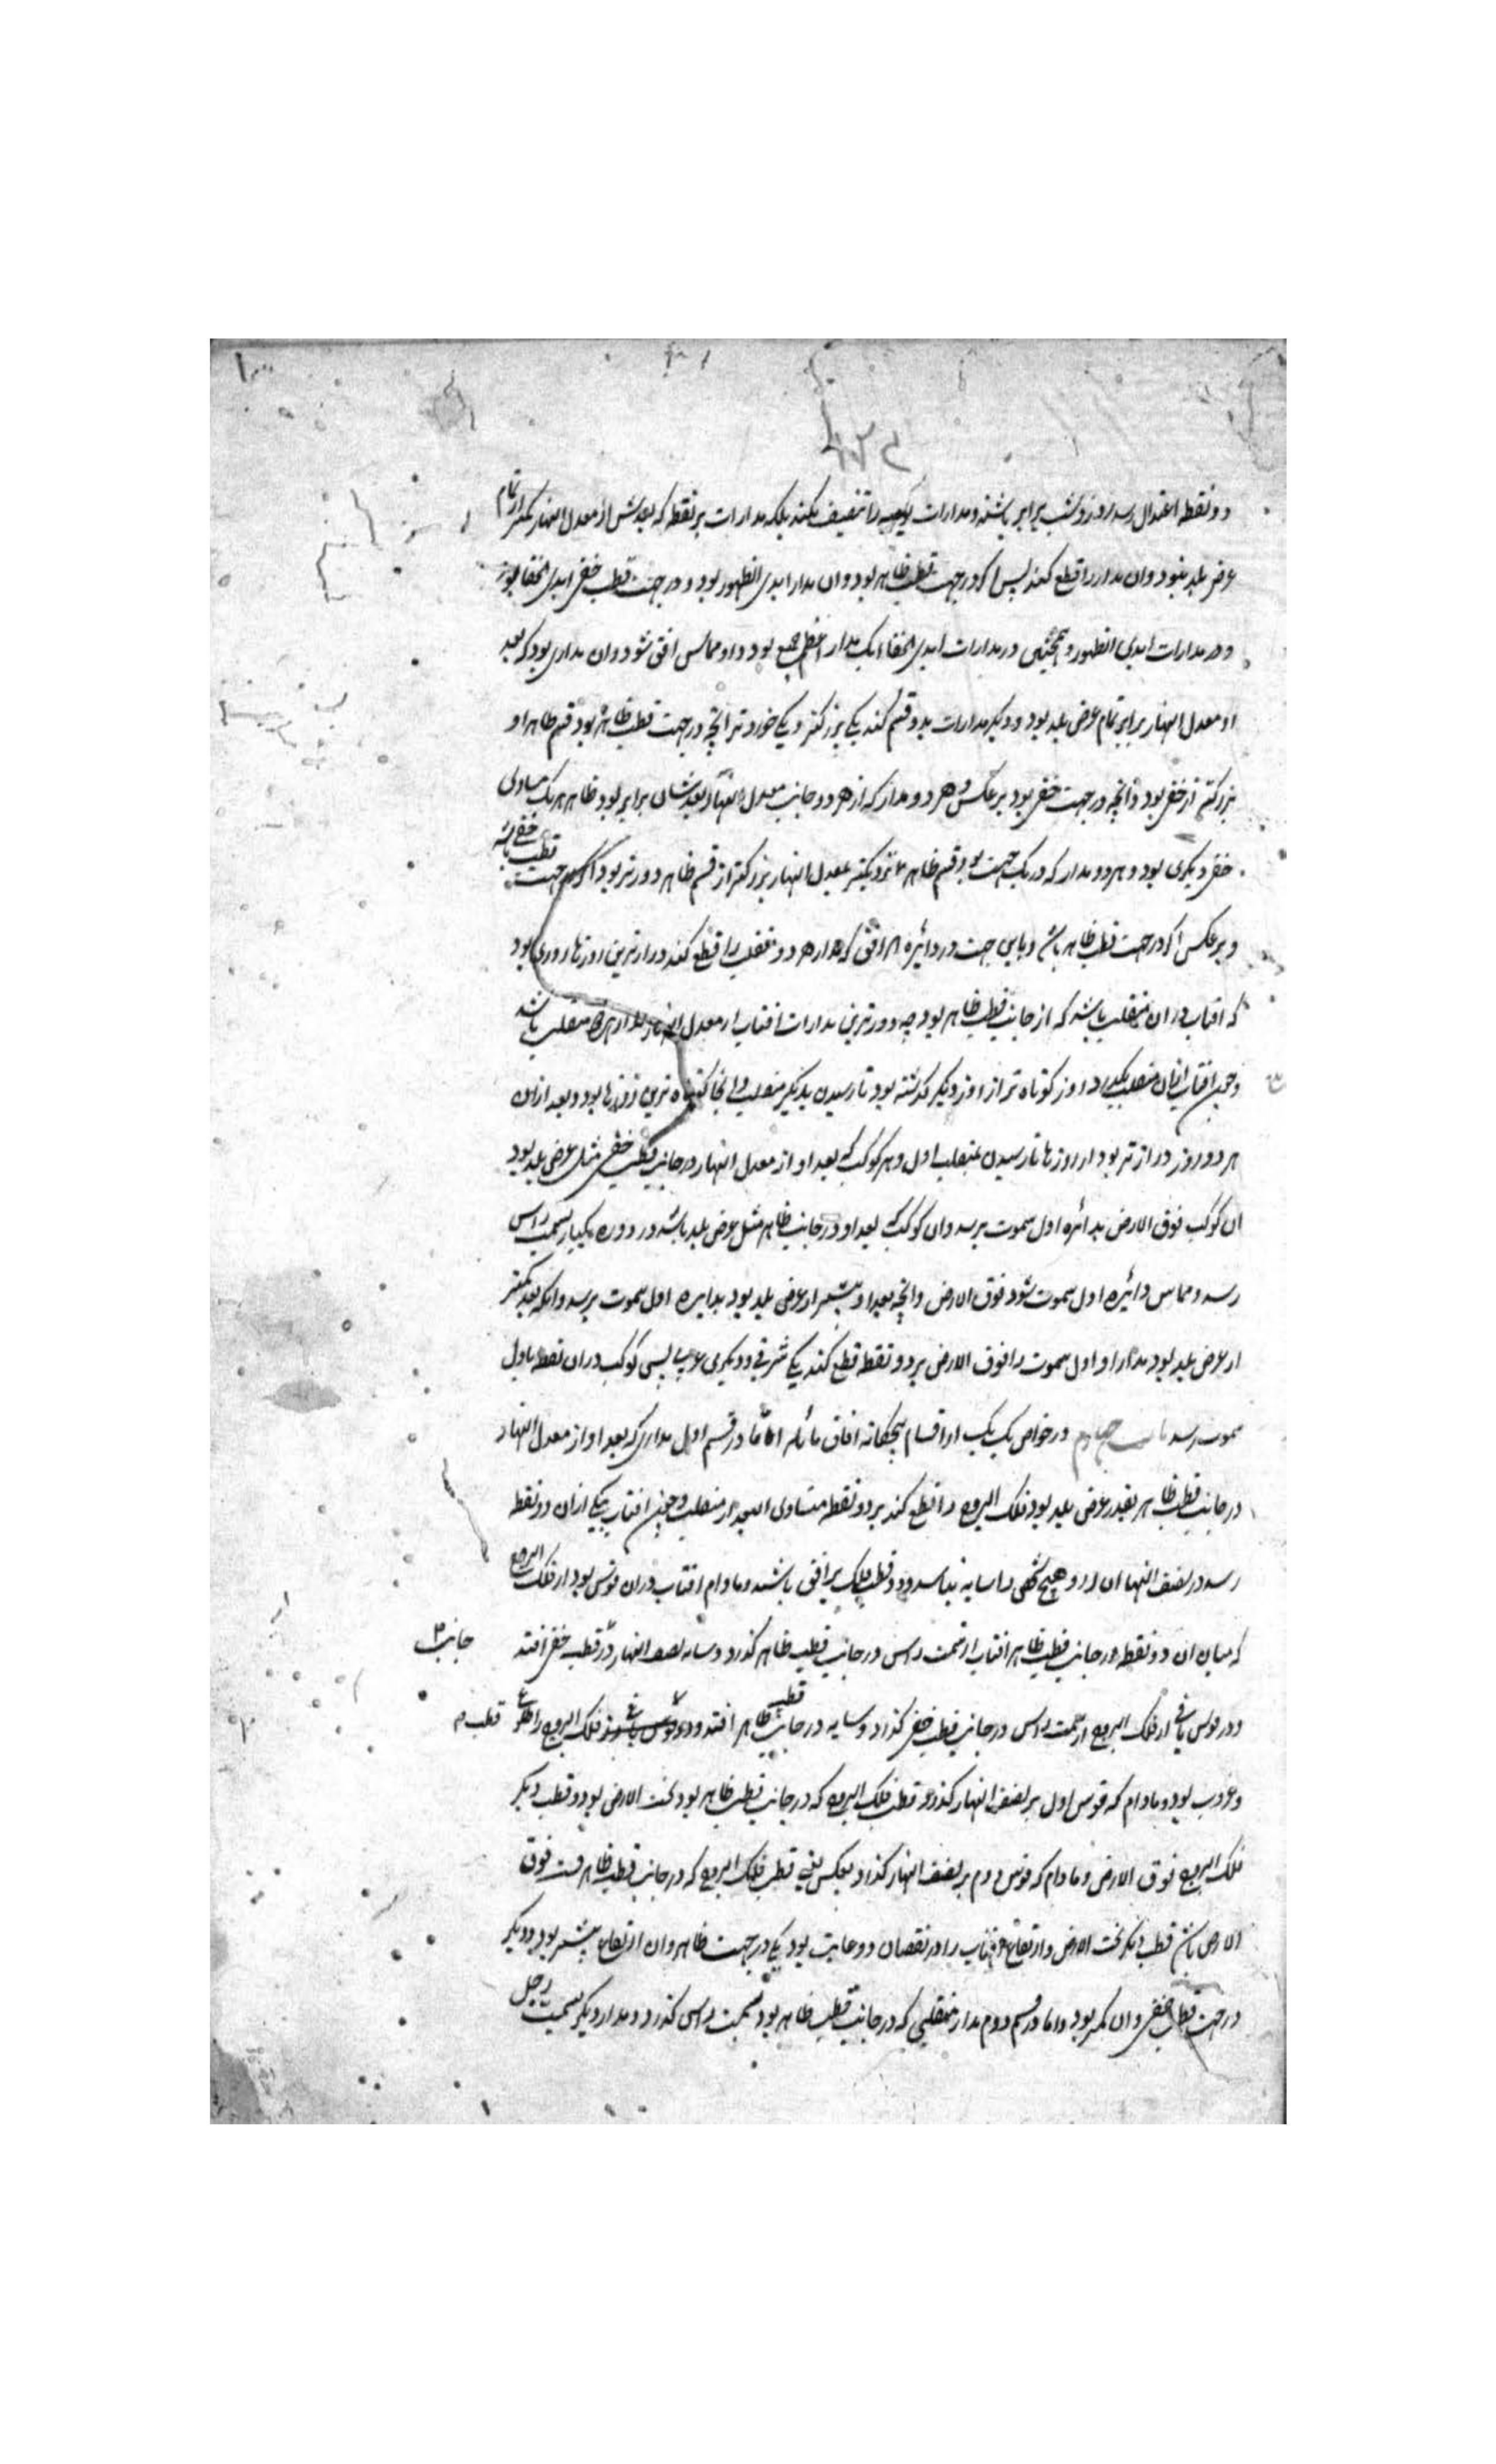 دو نقطه اعتدال رسد روز و شب برابر باشند و مدارات یومیه را تنصیف نکند بلکه مدارات بر نقطه که بعدش از معدل النهار کمتر از تمام
عرض بلد نبود و ان مدار را قطع نکند پس اکر در جهت قطب ظاهر بود و ان مدار ابدی الظهور بود و در جهت قطب خفی ابدی الخفا بود
و در مدارات ابدی الظهور و همچنین در مدارات ابدی الخفا یک مدار اعظم جمیع بود و او مماس افق شود و ان مداری بود که بعد
او معدل النهار برابر تمام عرض بلد بود و دیکر مدارات بدو قسم کند یکی بزرکتر و یکی خوردتر انچه در جهت قطب ظاهر بود قسم ظاهر او
بزرکتر از خفی بود و انچه در جهت خفی بود بر عکس و هر دو مدار که از هر دو جانب معدل النهار بعدشان برابر بود ظاهر هر یک مساوی
خفی دیکری بود و هر دو مدار که در یک جهت بود قسم ظاهر نزدیکتر بمعدل النهار بزرکتر از قسم ظاهر دورتر بود اکر در جهت قطب خفی باشد
و بر عکس اکر در جهت قطب ظاهر باشد و باین جهت در دائره هر افق که مدار هر دو منقلب را قطع کند درازترین روزها روزی بود
که افتاب در ان منقلب باشد که از جانب قطب ظاهر بود چه دورترین مدارات افتاب از معدل النهار مدار هر دو منقلب باشد
و چون افتاب از ان منقلب بکذرد روز کوتاه تر از روز دیکر کذشته بود تا رسیدن بدیکر منقلب و انجا کوتاه ترین روزها بود و بعد ازان
هر دو روز درازتر بود از روزها تا رسیدن بمنقلب اول و هر کوکب که بعد او از معدل النهار در جانب قطب خفی مثل عرض بلد بود
ان کوکب فوق الارض بدائره اول سموت نرسد و ان کوکب که بعد او در جانب ظاهر مثل عرض بلد باشد در دوره یکبار بسمت راس
رسد و مماس دائره اول سموت شود فوق الارض و انچه بعد او بیشتر از عرض بلد بود بدایره اول سموت نرسد و انکه بعد کمتر
از عرض بلد بود مدار او اول سموت را فوق الارض بر دو نقطه قطع کند یکی شرقی و دیکری غربی پس کوکب دران نقطه باول
سموت رسد باب چهارم در خواص یک یک از اقسام پنجکانه افاق مائله اما در قسم اول مداری که بعد او از معدل النهار
در جانب قطب ظاهر بقدر عرض بلد بود فلک البروج را قطع کند بر دو نقطه متساوی البعد از منقلب و چون افتاب بیکی ازان دو نقطه
رسد در نصف النهار ان روز هیچ شخصی را سایه نباشد و دو قطب فلک بر افق باشند و مادام افتاب دران قوس بود از فلک البروج
که میان ان دو نقطه در جانب قطب ظاهر افتاب از سمت راس در جانب قطب ظاهر کذرد و سایه نصف النهار در قطب خفی افتد جانب
و در قوس باقی از فلک البروج از سمت راس در جانب قطب خفی کذرد و سایه در جانب قطب ظاهر افتد و دو فلک البروج را طلوع قطب
و غروب بود و مادام که قوس اول بر نصف النهار کذرد قطب فلک البروج که در جانب قطب ظاهر بود تحت الارض بود و قطب دیکر
فلک البروج فوق الارض و مادام که قوس دوم بر نصف النهار کذرد بعکس یعنی قطب فلک البروج که در جانب قطب ظاهرست فوق
الارض باشد قطب دیکر تحت الارض و ارتفاع افتاب را در نقصان دو غایت بود یکی در جهت ظاهر و ان ارتفاع بیشتر بود و دیکر
در جهت قطب خفی و ان کمتر بود و اما در قسم دوم مدار منقلبی که در جانب قطب ظاهر بود بسمت راس کذرد و مدار دیکر بسمت رجل